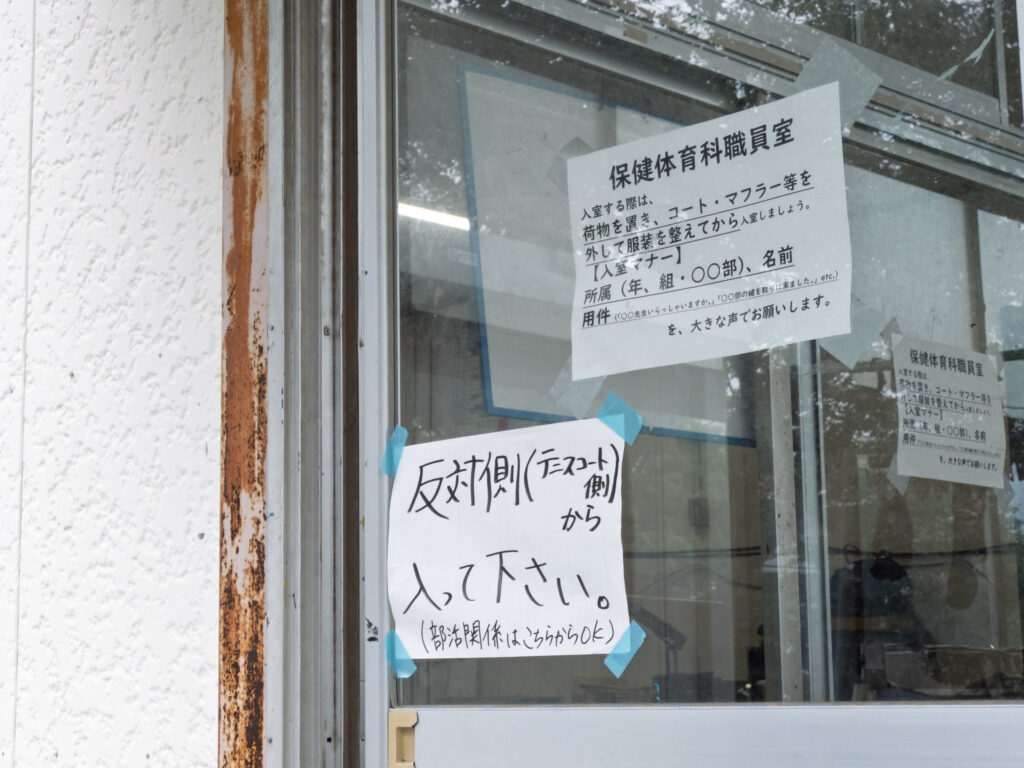 保健体育科職員室
入室する際は、
荷物を置き、コート・マフラー等を
外して服装を整えてから入室しましょう。
【入室マナー】
所属（年、組・〇〇部）、名前
用件（「〇〇先生いらっしゃいますか。」「〇〇部の鍵を取りに来ました。」etc.）
を、大きな声でお願いします。
反対側(テニスコート側)
から
入って下さい。
(部活関係はこちらからOK)
保健体育科職員室
入室する際は、
荷物を置き、コート・マフラー等を
外して服装を整えてから入室しましょう。
【入室マナー】
所属（年、組・〇〇部）、名前
用件
を、大きな声でお願いします。